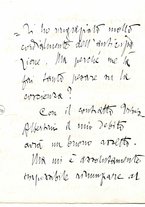 Ti ho ringraziato molto
cordialmente dell'anticipa
zione. Ma perché me la
fai tanto pesare su la
coscienza?
Con il contratto
Albertini il mio debito
avrà un buono assetto.
Ma mi è assolutamente
impossibile rinunziare al